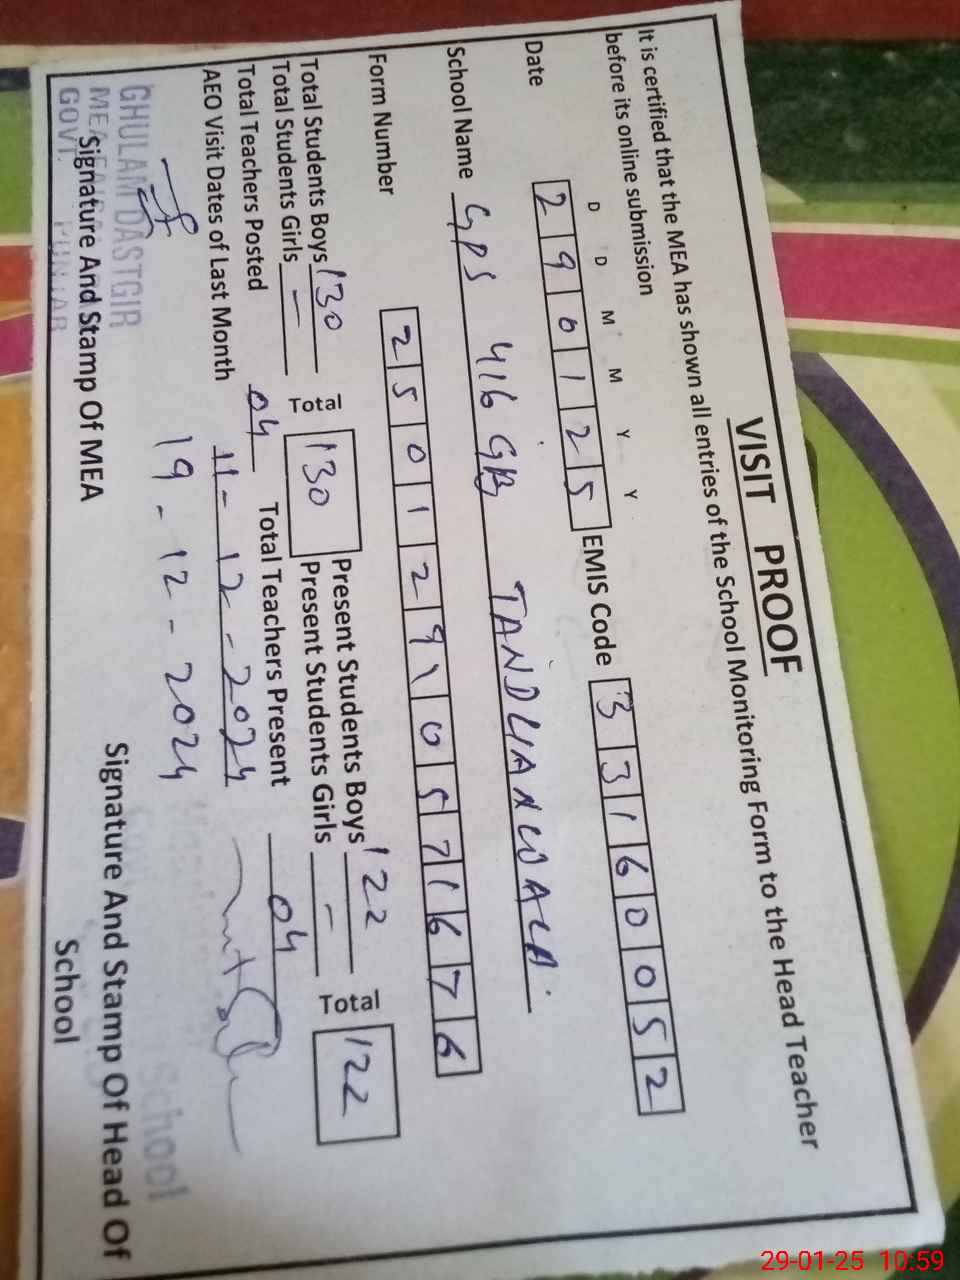 VISIT PROOF
It is certified that the MEA has shown all entries of the School Monitoring Form to the Head Teacher
before its online submission
D D M M Y Y
Date 290125 EMIS Code 33160052
School Name GPS 416 GB TANDLIANWALA.
Form Number 25012910571676
Total Students Boys 130 Total 130 Present Students Boys 122 Total 122
Total Students Girls - Present Students Girls -
Total Teachers Posted 04 Total Teachers Present 04
AEO Visit Dates of Last Month 11-12-2024
19-12-2024
GHULAM DASTGIR
MEA
GOVT. PUNJAB
School
Signature And Stamp Of MEA
Signature And Stamp Of Head Of
School
29-01-25 10:59